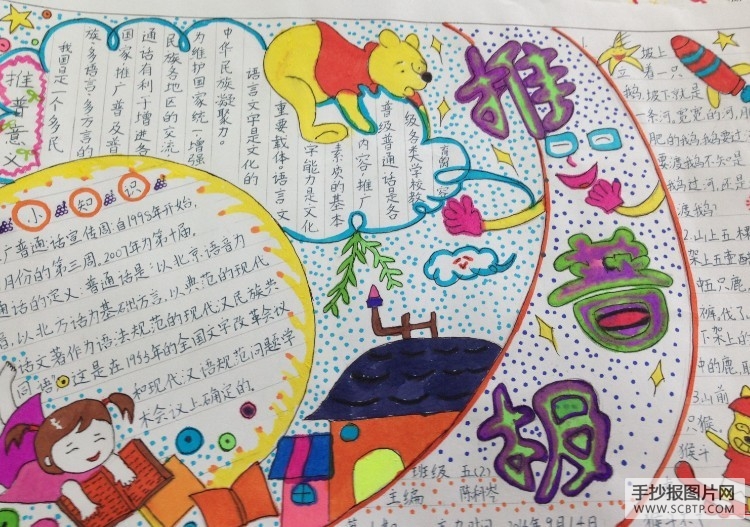 推普意义
我国是一个多民
族·多语言·多方言的
国家推广普及普
通话有利于增进各
民族各地区的交流·
为维护国家统一·增强
中华民族凝聚力。
语言文字是文化的
重要载体语言文
字能力是文化
素质的基本
内容·推广
普级普通话是各
级各类学校教
育的
容
小知识
广普通话宣传周·自1998年开始,
月份的第三周。2007年为第十届。
通话的定义:普通话是:以北京·语音为
音,以北方话为基础方言,以典范的现代
话文著作为语法规范的现代汉民族共
同语。这是在1955年的全国文字改革会议
和现代汉语规范问题学
术会议上确定的。
推普胡
班级 五(2)
主编
坡上
立着一只
鹅坡下就是
一条河,宽宽的河,肥
肥的鹅鹅要过
渡鹅
2.山上五棵
架上五壶醋
中五只鹿,
裤,伐了
下架上的
中的鹿,取
3.山前
只猴,
猴斗
手抄报图片网
WWW.SCBTP.COM